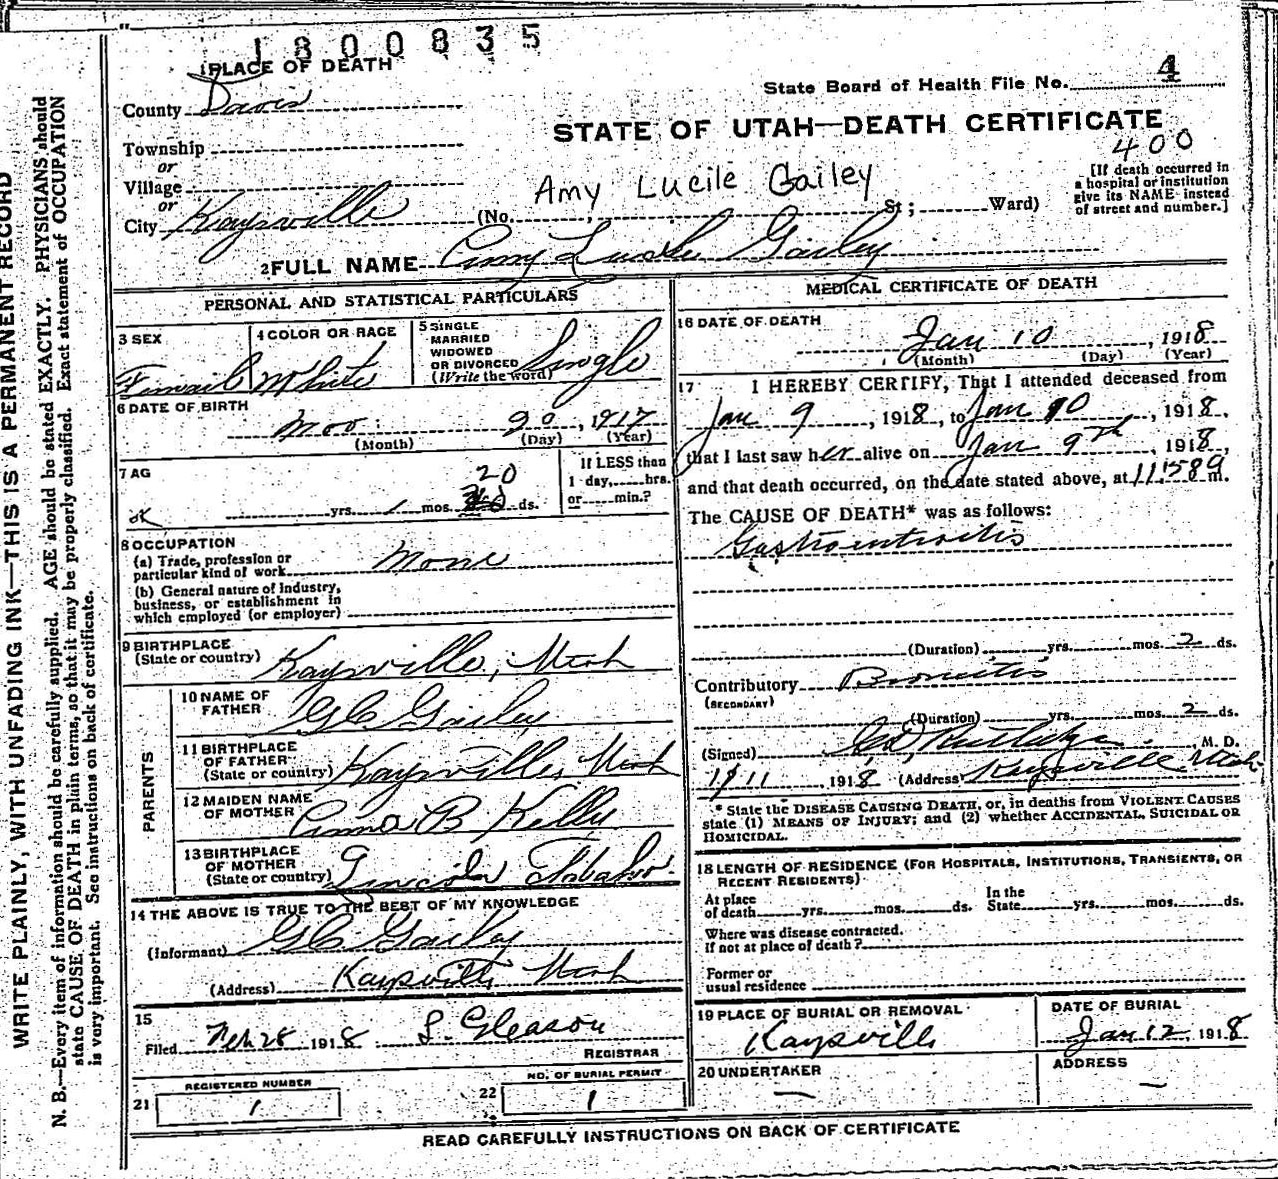 1800835
1 PLACE OF DEATH
State Board of Health File No. 4
County Davis
STATE OF UTAH—DEATH CERTIFICATE
400
Township
or
Village
or
City Kaysville (No. St; Ward)
Amy Lucile Gailey
[If death occurred in
a hospital or institution
give its NAME instead
of street and number.]
2 FULL NAME Amy Gailey
PERSONAL AND STATISTICAL PARTICULARS
3 SEX
Femail
4 COLOR OR RACE
White
5 SINGLE
MARRIED
WIDOWED
OR DIVORCED
(Write the word)
Single
6 DATE OF BIRTH
20, 1917
(Month) (Day) (Year)
7 AG
ok
20
yrs. 1 mos. ds.
If LESS than
1 day, hrs.
or min.?
8 OCCUPATION
(a) Trade, profession or
particular kind of work None
(b) General nature of industry,
business, or establishment in
which employed (or employer)
9 BIRTHPLACE
(State or country) Kaysville, Utah
PARENTS
10 NAME OF
FATHER G C Gailey
11 BIRTHPLACE
OF FATHER
(State or country) Kaysville, Utah
12 MAIDEN NAME
OF MOTHER Anna B Kelly
13 BIRTHPLACE
OF MOTHER
(State or country) Lincoln
14 THE ABOVE IS TRUE TO THE BEST OF MY KNOWLEDGE
(Informant) G C Gailey
(Address) Kaysville Utah
15
Filed Feb 28 1918 S. Gleason
REGISTRAR
REGISTERED NUMBER
21 1
NO. OF BURIAL PERMIT
22 1
MEDICAL CERTIFICATE OF DEATH
16 DATE OF DEATH
Jan 10, 1918
(Month) (Day) (Year)
17 I HEREBY CERTIFY, That I attended deceased from
Jan 9, 1918, to Jan 10, 1918,
that I last saw her alive on Jan 9th, 1918,
and that death occurred, on the date stated above, at m.
The CAUSE OF DEATH* was as follows:
Gastroenteritis
(Duration) yrs. mos. 2 ds.
Contributory
(SECONDARY)
(Duration) yrs. mos. 2 ds.
(Signed) Rutledge, M. D.
1/11, 1918 (Address) Kaysville Utah
* State the DISEASE CAUSING DEATH, or, in deaths from VIOLENT CAUSES
state (1) MEANS OF INJURY; and (2) whether ACCIDENTAL, SUICIDAL OR
HOMICIDAL.
18 LENGTH OF RESIDENCE (FOR HOSPITALS, INSTITUTIONS, TRANSIENTS, OR
RECENT RESIDENTS)
At place
of death yrs. mos. ds.
In the
State yrs. mos. ds.
Where was disease contracted.
if not at place of death?
Former or
usual residence
19 PLACE OF BURIAL OR REMOVAL
Kaysville
DATE OF BURIAL
Jan 12, 1918
20 UNDERTAKER
—
ADDRESS
—
READ CAREFULLY INSTRUCTIONS ON BACK OF CERTIFICATE
WRITE PLAINLY, WITH UNFADING INK—THIS IS A PERMANENT RECORD
N. B.—Every item of information should be carefully supplied. AGE should be stated EXACTLY. PHYSICIANS should
state CAUSE OF DEATH in plain terms, so that it may be properly classified. Exact statement of OCCUPATION
is very important. See instructions on back of certificate.